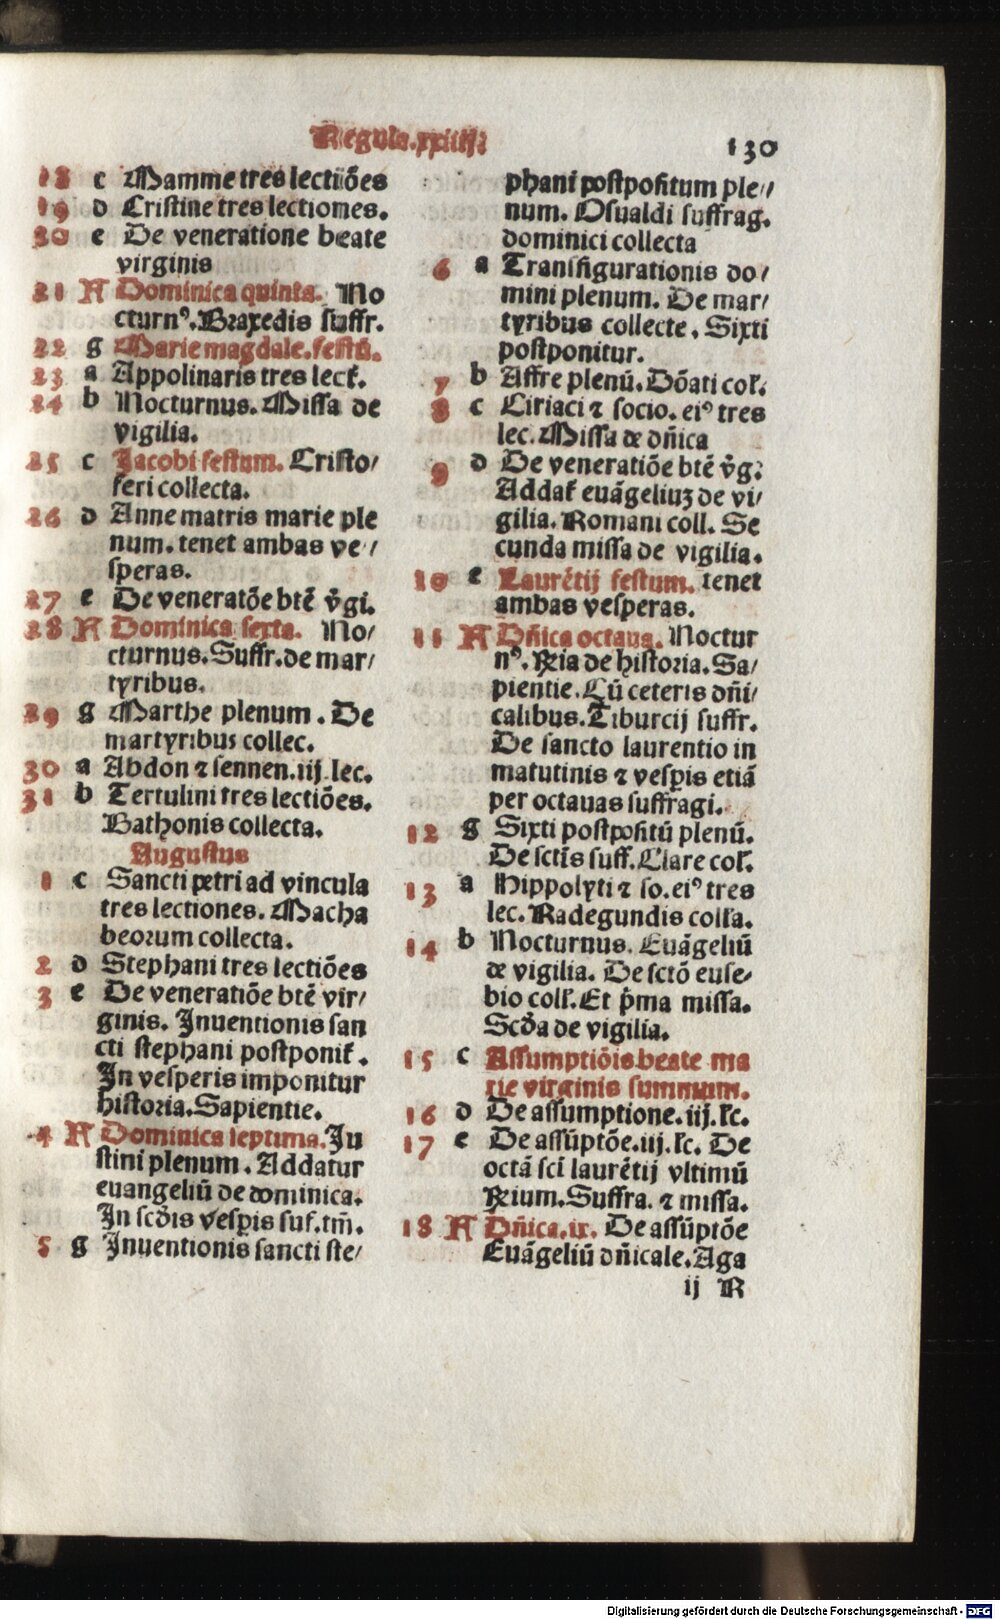 Regula.xxiiij.
130
18 c Mamme tres lectiões
19 d Cristine tres lectiones.
20 e De veneratione beate
virginis
21 A Dominica quinta. No
cturnꝰ. Braxedis suffr.
22 g Marie magdale. festū.
23 a Appolinaris tres lect̄.
24 b Nocturnus. Missa de
vigilia.
25 c Jacobi festum. Cristo/
feri collecta.
26 d Anne matris marie ple
num. tenet ambas ve/
speras.
27 e De veneratōe btē v̄gi.
28 A Dominica sexta. No/
cturnus. Suffr. de mar/
tyribus.
29 g Marthe plenum. De
martyribus collec.
30 a Abdon ⁊ sennen. iij. lec.
31 b Tertulini tres lectiões.
Bathonis collecta.
Augustus
1 c Sancti petri ad vincula
tres lectiones. Macha
beorum collecta.
2 d Stephani tres lectiões
3 e De veneratiōe btē vir/
ginis. Inuentionis san
cti stephani postponit̄.
In vesperis imponitur
historia. Sapientie.
4 A Dominica septima. Ju
stini plenum. Addatur
euangeliū de dominica.
In scd̄is vesp̄is suf. tm̄.
5 g Inuentionis sancti ste/
phani postpositum ple//
num. Osualdi suffrag.
dominici collecta
6 a Transfigurationis do/
mini plenum. De mar/
tyribus collecte. Sixti
postponitur.
7 b Affre plenū. Dōati col̄.
8 c Ciriaci ⁊ socio. eiꝰ tres
lec. Missa de dn̄ica
9 d De veneratiōe btē v̄g.
Addat̄ euāgeliuꝫ de vi/
gilia. Romani coll. Se
cunda missa de vigilia.
10 e Laurētij festum. tenet
ambas vesperas.
11 A Dn̄ica octaua. Noctur
nꝰ. R̄ia de historia. Sa/
pientie. Cū ceteris dn̄i/
calibus. Tiburcij suffr.
De sancto laurentio in
matutinis ⁊ vesp̄is etiā
per octauas suffragi.
12 g Sixti postpositū plenū.
De sct̄is suff. Clare col̄.
13 a Hippolyti ⁊ so. eiꝰ tres
lec. Radegundis colla.
14 b Nocturnus. Euāgeliū
de vigilia. De sctō euse/
bio coll̄. Et p̄ma missa.
Scd̄a de vigilia.
15 c Assumptiōis beate ma
rie virginis summum.
16 d De assumptione. iij. l̄c.
17 e De assūptōe. iij. l̄c. De
octā sci̅ laurētij vltimū
R̄ium. Suffra. ⁊ missa.
18 A Dn̄ica. ix. De assūptōe
Euāgeliū dn̄icale. Aga
ij R
Digitalisierung gefördert durch die Deutsche Forschungsgemeinschaft - DFG